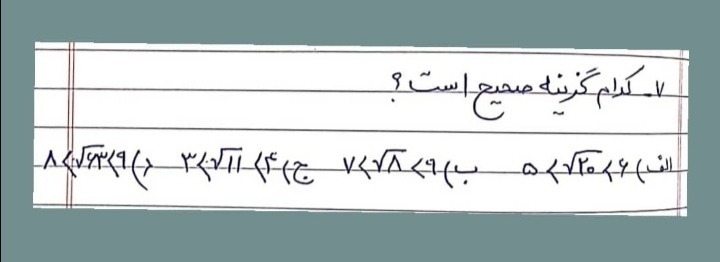 ۷- کدام گزینه صحیح است ؟
الف) ۶ > √۲۰ > ۵ ب) ۹ > √۸ > ۷ ج) ۴ > √۱۱ > ۳ د) ۹ > √۶۳ > ۸